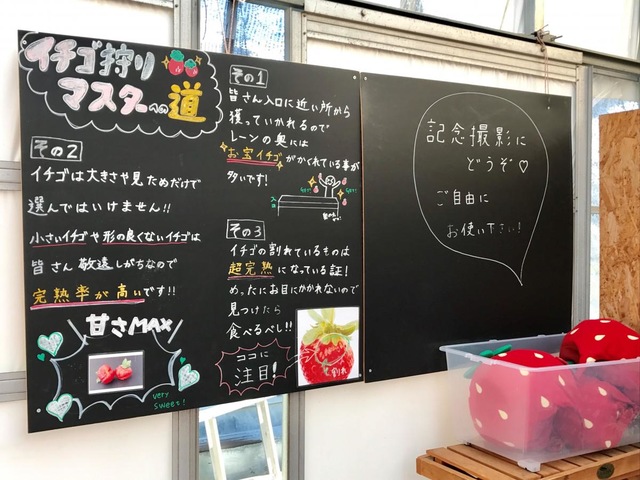 イチゴ狩り
マスターへの道
その1
皆さん入口に近い所から
獲っていかれるので
レーンの奥には
お宝イチゴがかくれている事が
多いです!
入口
その2
イチゴは大きさや見ためだけで
選んではいけません!!
小さいイチゴや形の良くないイチゴは
皆さん敬遠しがちなので
完熟率が高いです!!
甘さMAX
very
sweet!
その3
イチゴの割れているものは
超完熟になっている証!
めったにお目にかかれないので
見つけたら
食べるべし!!
ココに
注目!
割れ
記念撮影に
どうぞ♡
ご自由に
お使い下さい!